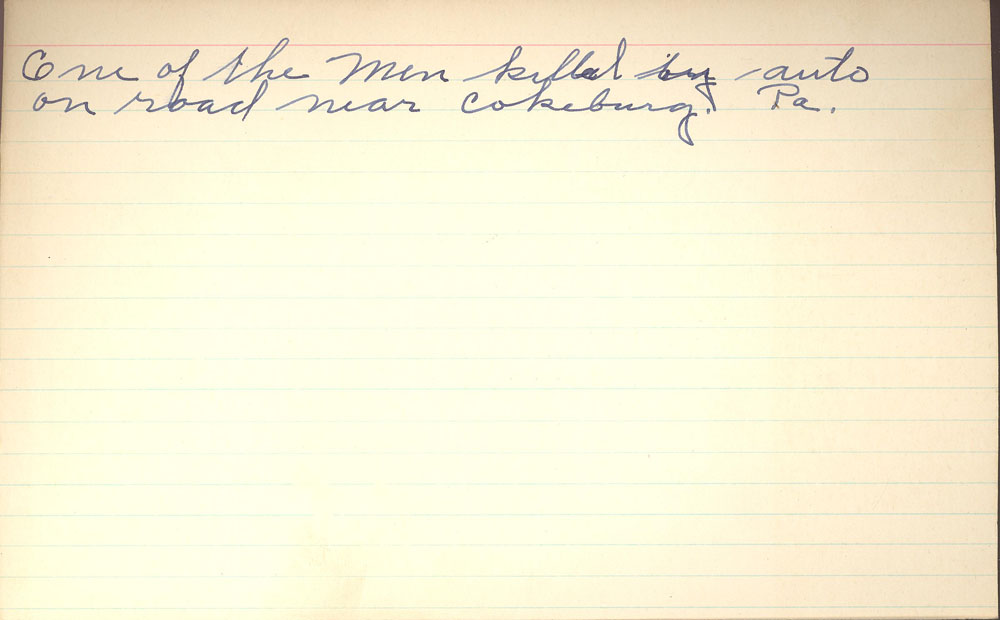 One of the Men killed by auto
on road near Cokeburg. Pa.